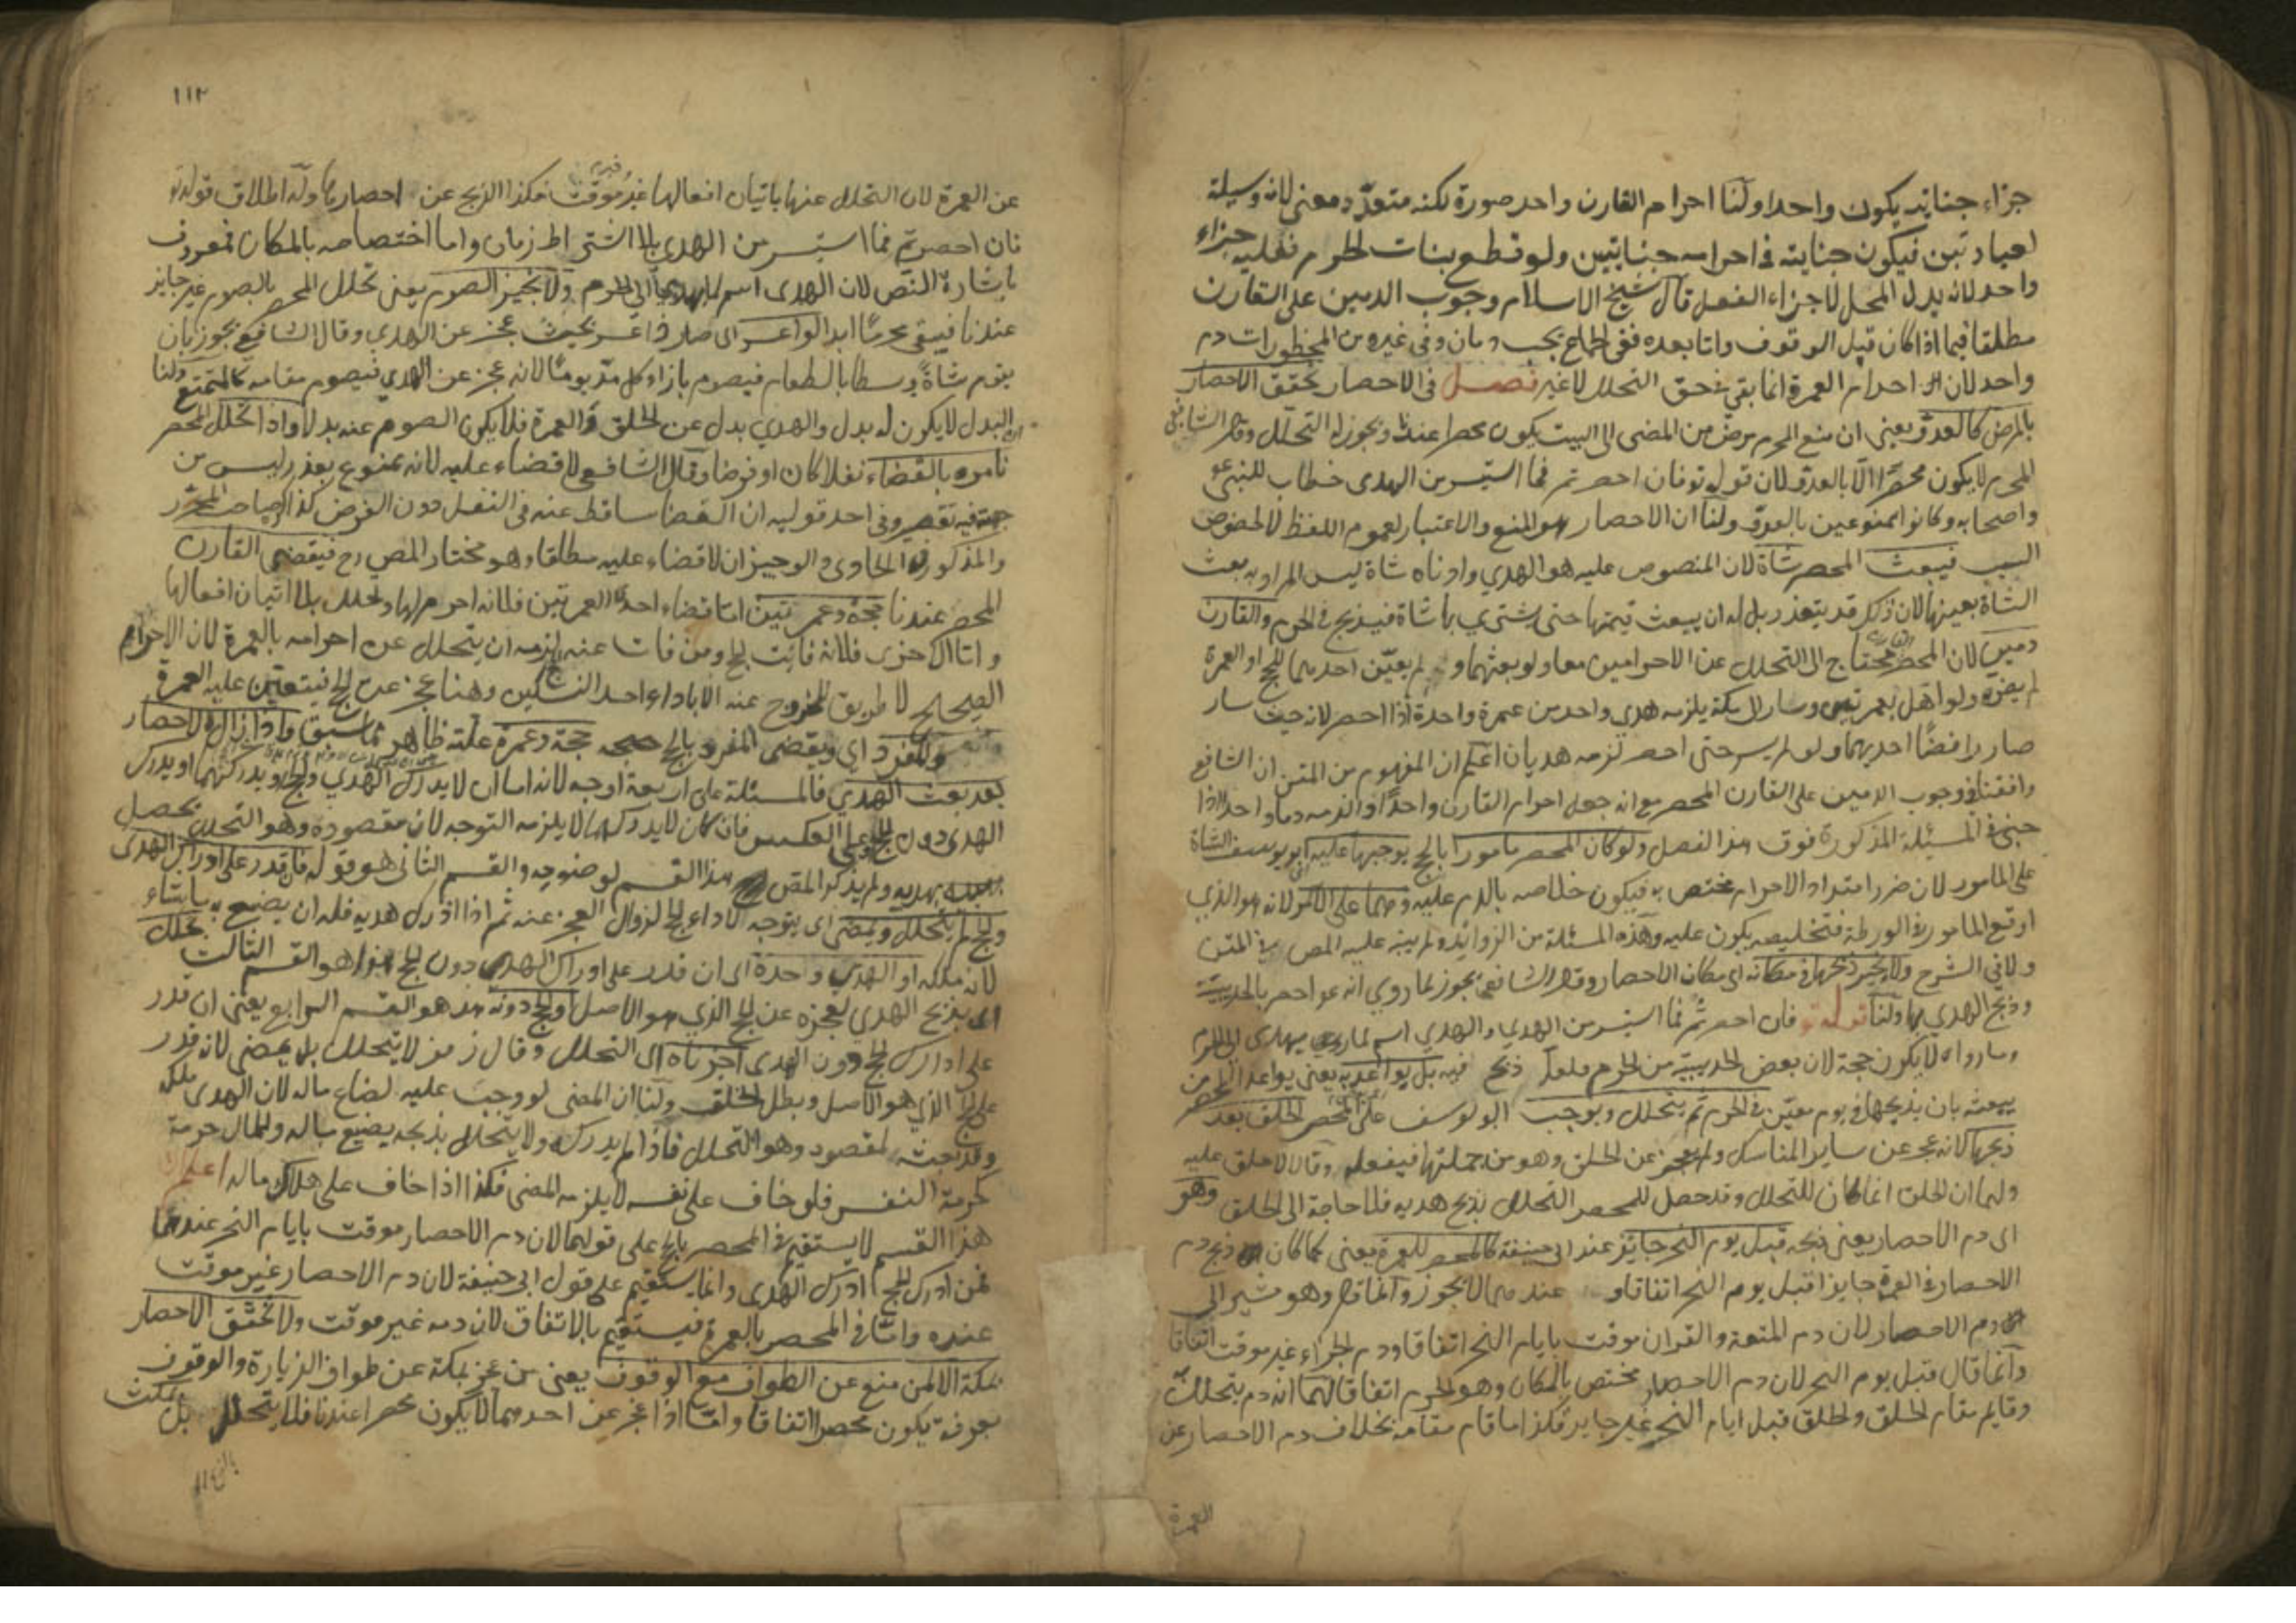 جزاء جنايته يكون واحدا ولنا احرام القارن واحد صورة لكنه متعدد معنى لانه وسيلة
لعبادتين فيكون جنايته في احرامه جنايتين ولو قطع بنات الحرم فعليه جزاء
واحد لانه بدل المحل لا جزاء الفعل قال شيخ الاسلام وجوب الدمين على القارن
مطلقا فيما اذا كان قبل الوقوف واما بعده ففي الجماع يجب دمان وفي غيره من المحظورات دم
واحد لان احرام العمرة انما بقي في حق التحلل لا غير فصل في الاحصار تحقق الاحصار
بالمرض كالعدو يعني ان منع المحرم مرض من المضى الى البيت يكون محصرا عندنا ويجوز له التحلل وقال الشافعي
المحرم لا يكون محصرا الا بالعدو لان قوله تع فان احصرتم فما استيسر من الهدى خطاب للنبي ع
واصحابه وكانوا ممنوعين بالعدو ولنا ان الاحصار هو المنع والاعتبار لعموم اللفظ لا لخصوص
السبب فيبعث المحصر شاة لان المنصوص عليه هو الهدي وادناه شاة ليس المراد به بعث
الشاة بعينها لان ذلك قد يتعذر بل له ان يبعث قيمتها حتى يشتري بها شاة فيذبح في الحرم والقارن
دمين لان المحصر محتاج الى التحلل عن الاحرامين معا ولو بعثهما ولم يعين احدهما للحج او العمرة
لم يضره ولو اهل بعمرتين وسار الى مكة يلزمه هدي واحد من عمرة واحدة اذا احصر لانه حيث سار
صار رافضا احديهما ولو لم يسر حتى احصر لزمه هديان اعلم ان المفهوم من المتن ان الشافعي
وافقنا في وجوب الدمين على القارن المحصر مع انه جعل احرام القارن واحدا والزمه دما واحدا اذا
جنى في المسئلة المذكورة فوق هذا الفصل ولو كان المحصر مامورا بالحج يوجبها عليه ابو يوسف الشاة
على المامور لان ضرر امتداد الاحرام مختص به فيكون خلاصه بالدم عليه وهما على الآمر لانه هو الذي
اوقع المامور في الورطة فتخليصه يكون عليه وهذه المسئلة من الزوائد ولم ينبه عليه المص في المتن
ولا في الشرح ولا يجيز ذبحها في مكانه اي مكان الاحصار وقال الشافعي يجوز لما روي انه ع احصر بالحديبية
وذبح الهدي بها ولنا قوله تع فان احصرتم فما استيسر من الهدي والهدي اسم لما يهدى الى الحرم
وما رواه لا يكون حجة لان بعض الحديبية من الحرم فلعله ذبح فيه بل يواعد به يعني يواعد المحصر من
يبعثه بان يذبحها في يوم معين في الحرم ثم يتحلل ويوجب ابو يوسف على المحصر الحلق بعد
ذبحها لانه عجز عن ساير المناسك ولم يعجز عن الحلق وهو من جملتها فيفعله وقالا لا حلق عليه
ولهما ان الحلق انما كان للتحلل وقد حصل للمحصر التحلل بذبح هديه فلا حاجة الى الحلق وهو
اى دم الاحصار يعني ذبحه قبل يوم النحر جايز عند ابى حنيفة كالمحصر للعمرة يعني كما كان ذبح دم
الاحصار في العمرة جايزا قبل يوم النحر اتفاقا وعندهما لا يجوز وانما قال وهو مشير الى
دم الاحصار لان دم المتعة والقران موقت بايام النحر اتفاقا ودم الجزاء غير موقت اتفاقا
وانما قال قبل يوم النحر لان دم الاحصار مختص بالمكان وهو الحرم اتفاقا لهما انه دم يتحلل
وقايم مقام الحلق والحلق قبل ايام النحر غير جايز فكذا ما قام مقامه بخلاف دم الاحصار عن
العمرة
١١٢
عن العمرة لان التحلل عنها باتيان افعالها غير موقت فكذا الذبح عن احصارها وله اطلاق قوله تع
فان احصرتم فما استيسر من الهدي بلا اشتراط زمان واما اختصاصه بالمكان فمعروف
باشارة النص لان الهدى اسم لما يهدى الى الحرم ولا نجيز الصوم يعني تحلل المحصر بالصوم غير جايز
عندنا فيبقى محرما ابدا لو اعسر اى صار فى اعسر بحيث عجز عن الهدي وقال الشافعي يجوز بان
يقوم شاة وسطا بالطعام فيصوم بازاء كل مد يوما لانه عجز عن الهدي فيصوم مقامه كالمتمتع ولنا
ان البدل لا يكون له بدل والهدي بدل عن الحلق والعمرة فلا يكون الصوم عنه بدلا واذا تحلل المحصر
نامره بالقضاء نفلا كان او فرضا وقال الشافعي لا قضاء عليه لانه ممنوع بعذر ليس من
جهته فيه تقصير وفى احد قوليه ان القضا ساقط عنه في النفل دون الفرض كذا صاحب المحرر
والمذكور في الحاوى والوجيز ان لا قضاء عليه مطلقا وهو مختار المص رح فيقضى القارن
المحصر عندنا حجة وعمرتين اما قضاء احدى العمرتين فلانه احرم لها وتحلل بلا اتيان افعالها
واما الاخرى فلانه فائت الحج ومن فات عنه يلزمه ان يتحلل عن احرامه بالعمرة لان الاحرام
الصحيح لا طريق للخروج عنه الا باداء احد النسكين وهنا عجز عن الحج فيتعين عليه العمرة
والمفرد اي ويقضى المفرد بالحج حجة وعمرة علته ظاهر مما سبق واذا زال الاحصار
بعد بعث الهدي فالمسئلة على اربعة اوجه لانه اما ان لا يدرك الهدي والحج او يدركهما او يدرك
الهدى دون الحج او على العكس فان كان لا يدركهما لا يلزمه التوجه لان مقصوده وهو التحلل يحصل
بهديه ولم يذكر المص هذا القسم لوضوحه والقسم الثانى هو قوله فان قدر على ادراك الهدى
والحج لم يتحلل ويمضى اى يتوجه لاداء الحج لزوال العجز عنه ثم اذا ادرك هديه فله ان يصنع به ما شاء
لانه ملكه او الهدي وحده اى ان قدر على ادراك الهدي دون الحج هذا هو القسم الثالث يتحلل
اى بذبح الهدي لعجزه عن الحج الذي هو الاصل او الحج دونه هذا هو القسم الرابع يعني ان قدر
على ادراك الحج دون الهدى اجزناه اى التحلل وقال زفر لا يتحلل بل يمضى لانه قدر
على الحج الذي هو الاصل وبطل الخلف ولنا ان المضى لو وجب عليه لضاع ماله لان الهدى ملكه
وقد بعثه لمقصود وهو التحلل فاذا لم يدركه ولا يتحلل بذبحه يضيع ماله وللمال حرمة
كحرمة النفس فلو خاف على نفسه لا يلزمه المضى فكذا اذا خاف على هلاك ماله اعلم ان
هذا القسم لا يستقيم في المحصر بالحج على قولهما لان دم الاحصار موقت بايام النحر عندهما
فمن ادرك الحج ادرك الهدي وانما يستقيم على قول ابى حنيفة لان دم الاحصار غير موقت
عنده واما في المحصر بالعمرة فيستقيم بالاتفاق لان دمه غير موقت ولا تحقق الاحصار
بمكة الا لمن منع عن الطواف مع الوقوف يعنى من عجز بمكة عن طواف الزيارة والوقوف
بعرفة يكون محصرا اتفاقا واما اذا عجز عن احدهما لا يكون محصرا عندنا فلا يتحلل بل يمكث